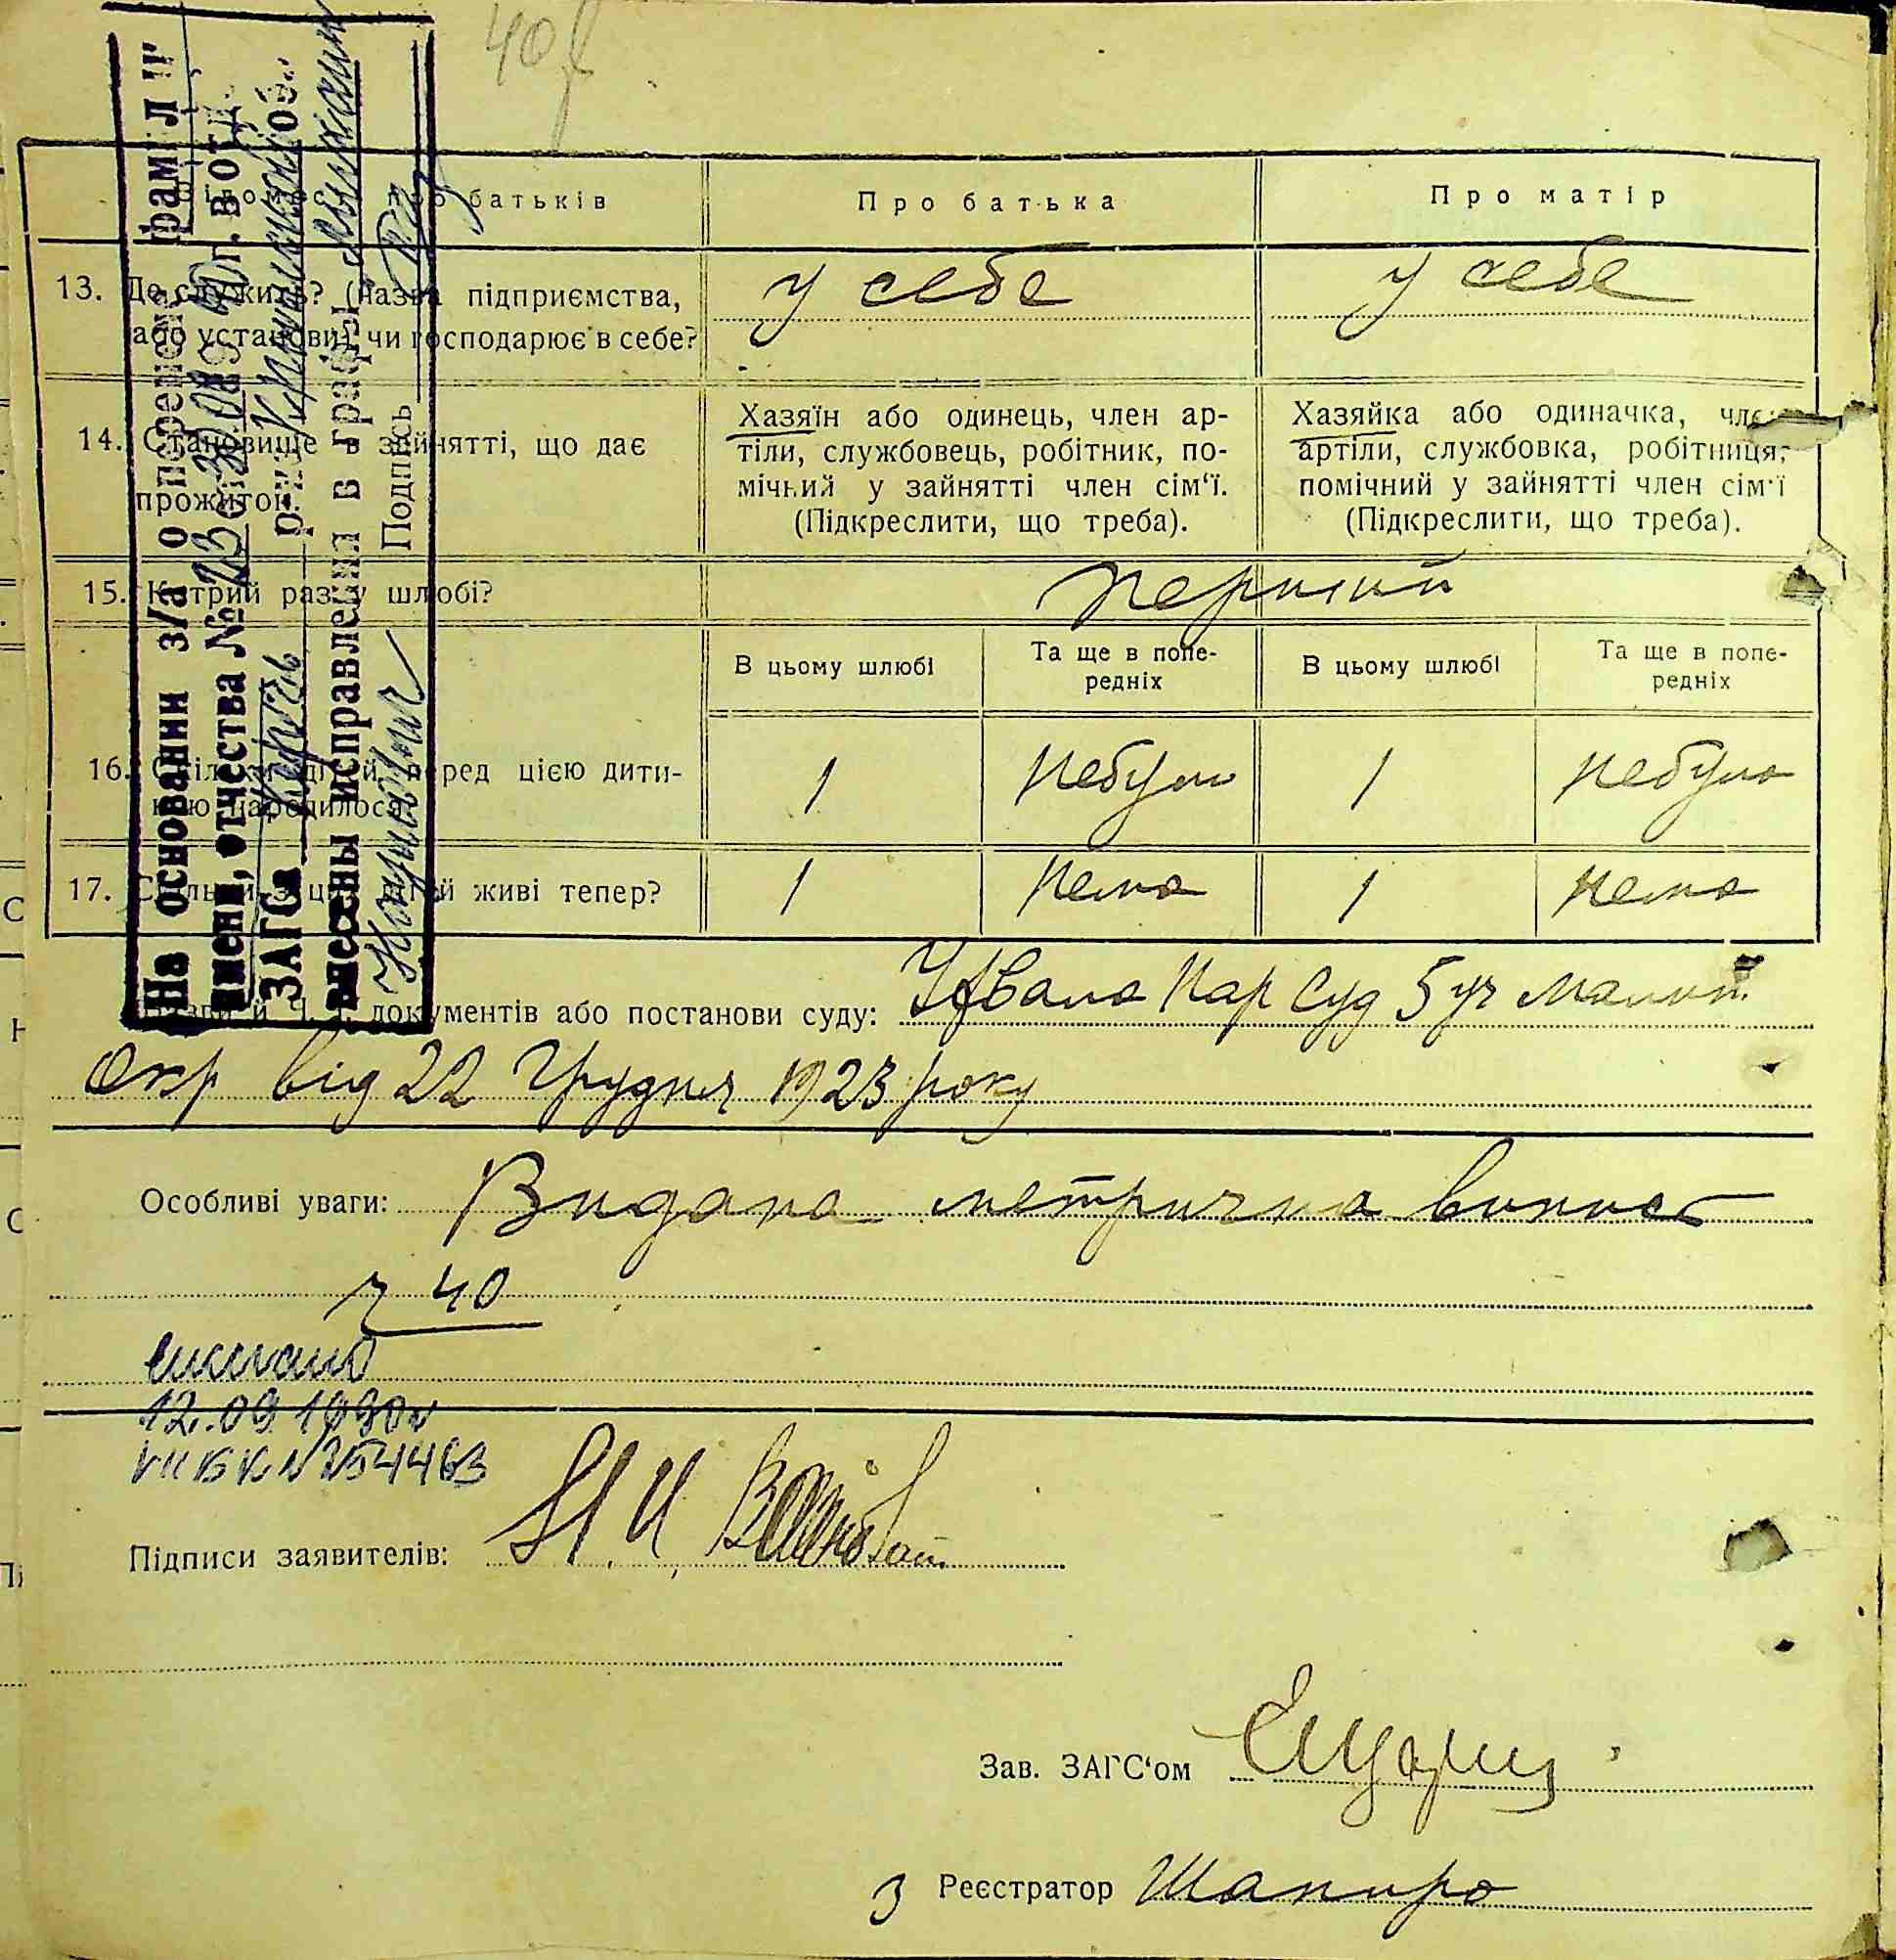 40
Відомості про батьків
Про батька
Про матір
13. Де служить? (Назва підприємства,
або установи), чи господарює в себе?
у себе
у себе
14. Становище в зайнятті, що дає
прожиток.
Хазяїн або одинець, член ар-
тіли, службовець, робітник, по-
мічний у зайнятті член сім‘ї.
(Підкреслити, що треба).
Хазяйка або одиначка, член
артіли, службовка, робітниця,
помічний у зайнятті член сім‘ї
(Підкреслити, що треба).
15. Котрий раз у шлюбі?
перший
В цьому шлюбі
Та ще в попе-
редніх
В цьому шлюбі
Та ще в попе-
редніх
16. Скільки дітей перед цією дити-
ною народилося?
1
небуло
1
небуло
17. Скільки з цих дітей живі тепер?
1
нема
1
нема
Назви й ч. ч. документів або постанови суду: Ухвала Нар Суд 5 уч
Окр від 22 Грудня 1923 року
Особливі уваги: Видана метрична випись
ч 40
12.09.1980
N 754463
Підписи заявителів:
Зав. ЗАГС‘ом
Реєстратор Шапиро
На основании з/а о перемене фамилии
имени, отчества № 23
ЗАГСа
внесены исправления в графы
Подпись